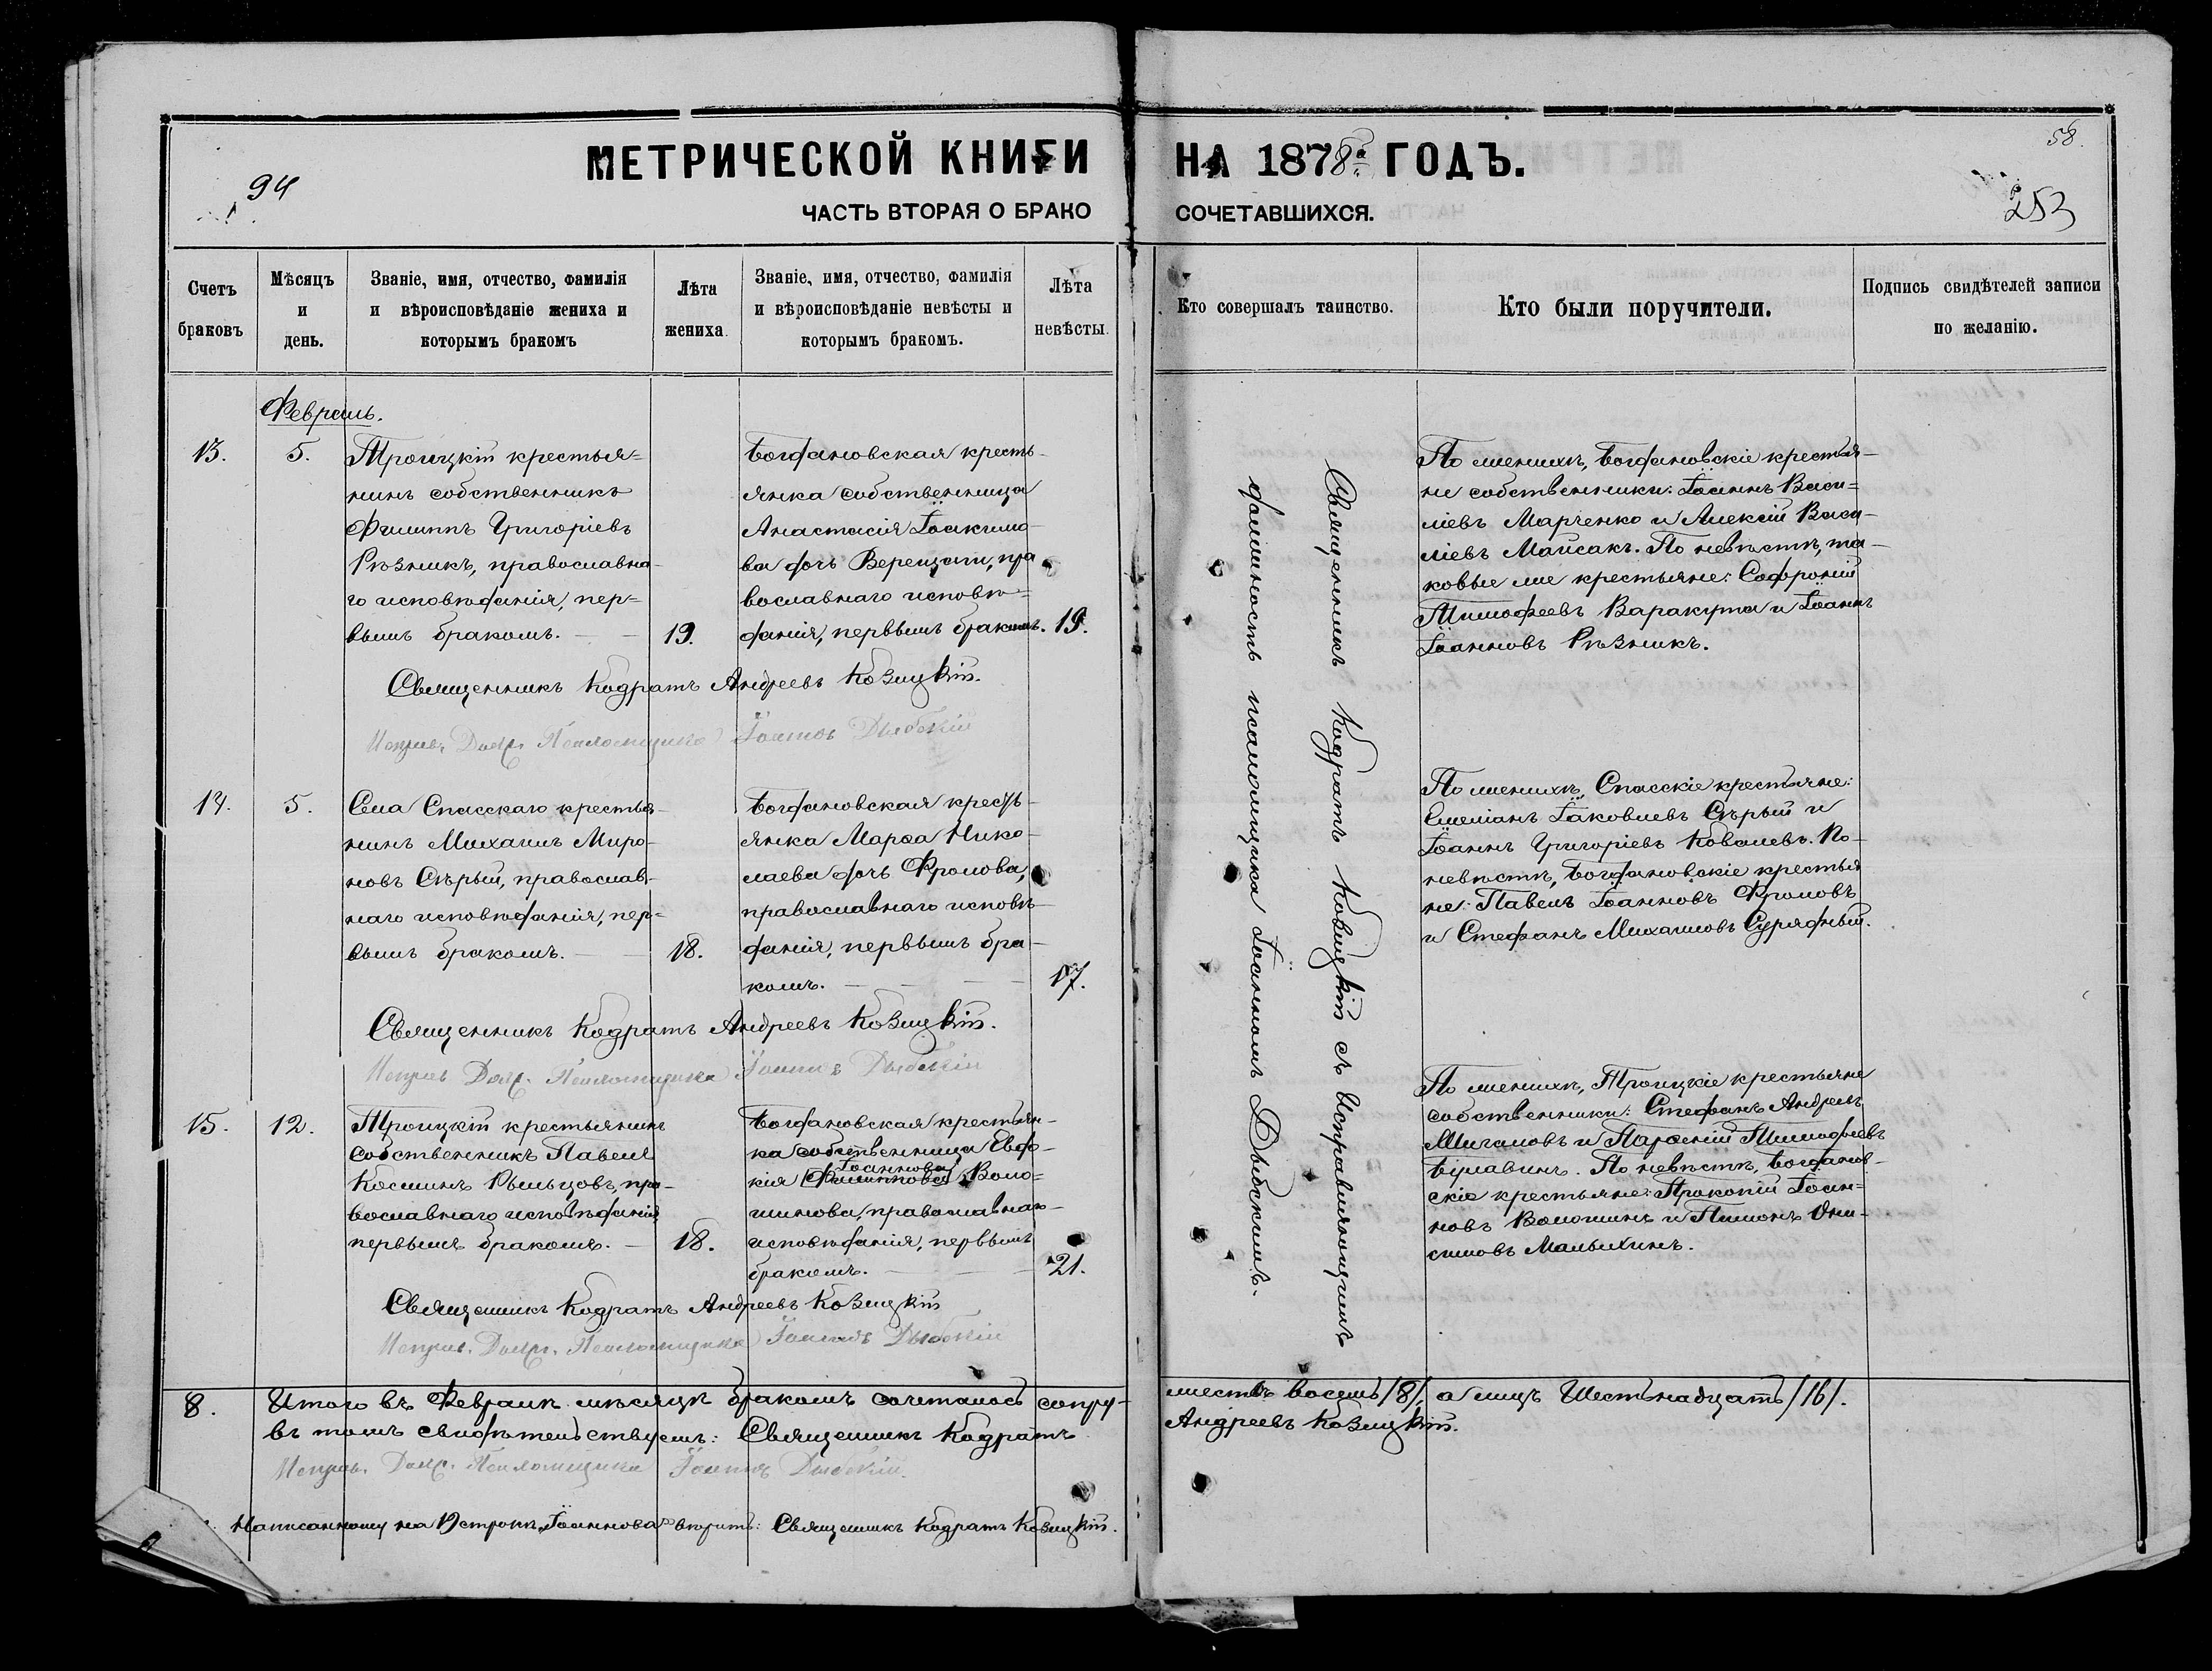 94
МЕТРИЧЕСКОЙ КНИГИ НА 1878й ГОДЪ.
58.
253
ЧАСТЬ ВТОРАЯ О БРАКО СОЧЕТАВШИХСЯ.
Счетъ браковъ
Мѣсяцъ и день.
Званіе, имя, отчество, фамилія
и вѣроисповѣданіе жениха и
которымъ бракомъ
Лѣта жениха.
Званіе, имя, отчество, фамилія
и вѣроисповѣданіе невѣсты и
которымъ бракомъ.
Лѣта невѣсты.
Кто совершалъ таинство.
Кто были поручители.
Подпись свидѣтелей записи
по желанію.
Февраль.
13.
5.
Троицкій крестья=
нинъ собственникъ
Филиппъ Григоріевъ
Рѣзникъ, православна-
го исповѣданія, пер=
вымъ бракомъ.
19.
Богдановская кресть-
янка собственница
Анастасія Іоакимо-
ва дочь Верещаги, пра
вославнаго исповѣ=
данія, первымъ бракомъ.
19.
По женихѣ, Богдановскіе крестья-
не собственники: Іоаннъ Васи=
ліевъ Марченко и Алексій Васи-
ліевъ Майсакъ. По невѣстѣ, та-
ковые же крестьяне: Софроній
Тимофеевъ Варакута и Іоаннъ
Іоанновъ Рѣзникъ.
Священникъ Кодратъ Андреевъ Козицкій.
Исправ. Долж. Псаломщика Іоаннъ Дыбскій
14.
5.
Села Спасскаго крестья-
нинъ Михаилъ Миро-
новъ Сѣрый, православ-
наго исповѣданія, пер=
вымъ бракомъ.
18.
Богдановская кресть-
янка Марѳа Нико-
лаева дочь Фролова,
православнаго исповѣ-
данія, первымъ бра-
комъ.
17.
По женихѣ, Спасскіе крестьяне:
Емеліанъ Іаковлевъ Сѣрый и
Іоаннъ Григоріевъ Ковалевъ. По-
невѣстѣ, Богдановскіе крестья
не: Павелъ Іоанновъ Фроловъ
и Стефанъ Михаиловъ Сурядный.
Священникъ Кодратъ Андреевъ Козицкій.
Исправ. Долж. Псаломщика Іоаннъ Дыбскій
15.
12.
Троицкій крестьянинъ
собственникъ Павелъ
Косминъ Рыльцовъ, пра-
вославнаго исповѣданія
первымъ бракомъ.
18.
Богдановская крестьян-
ка собственница Евдо-
Іоаннова
кія (Филиппова) Воло=
шинова, православнаго
исповѣданія, первымъ
бракомъ.
21.
По женихѣ, Троицкіе крестьяне
собственники: Стефанъ Андреевъ
Мигановъ и Парѳеній Тимофеевъ
Булавинъ. По невѣстѣ, Богданов-
скіе крестьяне: Прокопій Іоан=
новъ Волошинъ и Пименъ Они-
симовъ Малыхинъ.
Священникъ Кодратъ Андреевъ Козицкій
Исправ. Долж. Псаломщика Іоаннъ Дыбскій
Священникъ Кодратъ Козицкій съ Исправляющимъ
должность псаломщика Іоанномъ Дыбскимъ.
8.
Итого въ Февралѣ мѣсяцѣ бракомъ сочеталось супру-
жествъ восемь /8/, а лицъ Шестьнадцать /16/.
въ томъ свидѣтельствуемъ: Священникъ Кодратъ
Андреевъ Козицкій.
Исправ. Долж. Псаломщика Іоаннъ Дыбскій.
Написанному на 13 строкѣ „Іоаннова" вѣрить: Священникъ Кодратъ Козицкій.